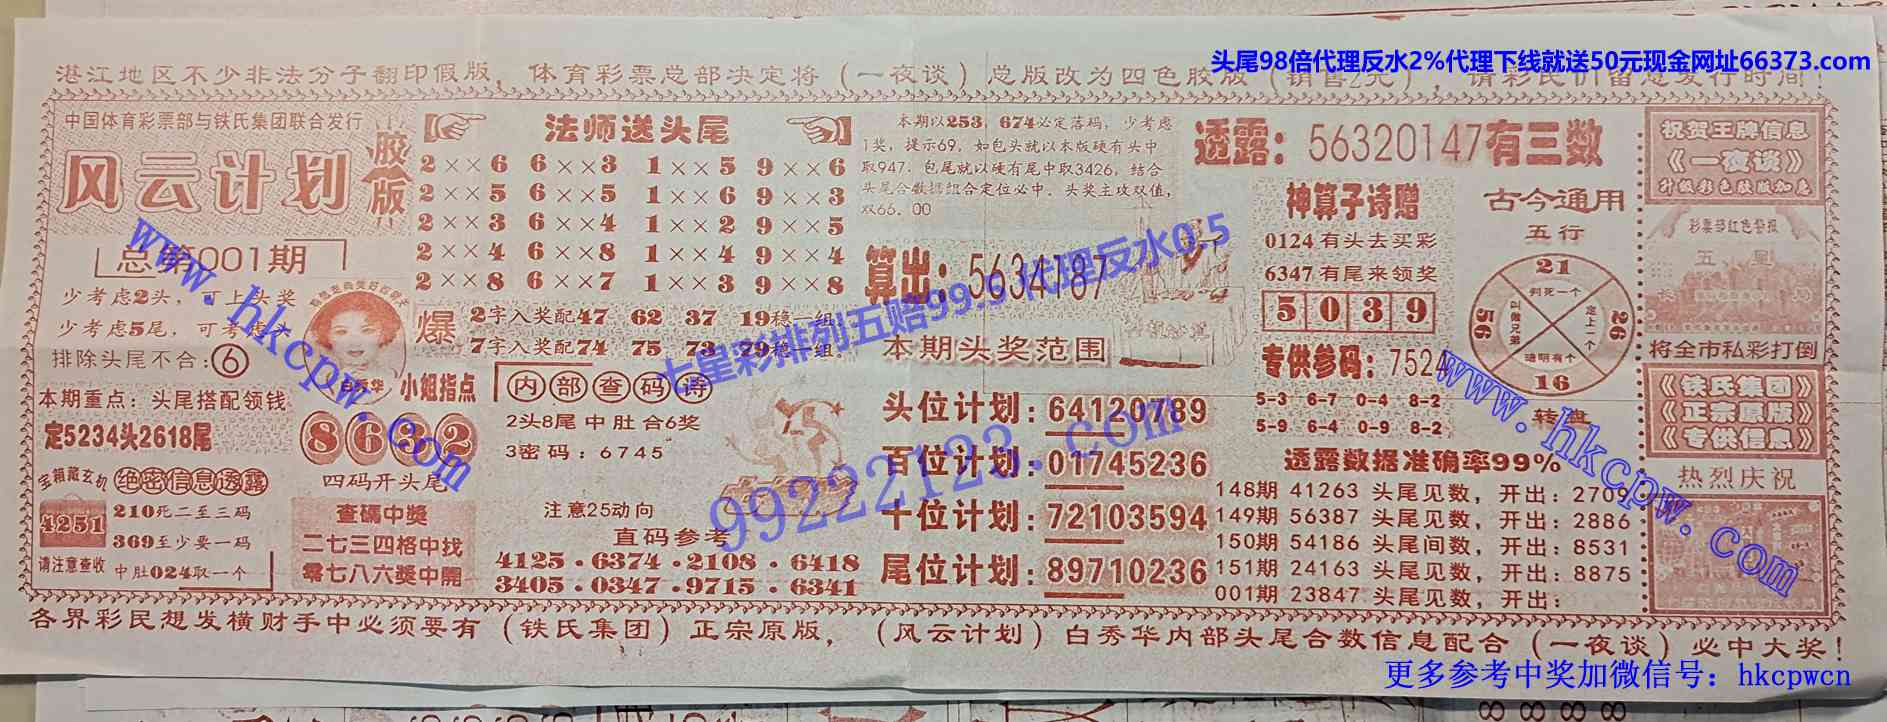 头尾98倍代理反水2%代理下线就送50元现金网址66373.com
湛江地区不少非法分子翻印假版，体育彩票总部决定将（一夜谈）总版改为四色胶版（销售2元），请彩民们留意发行时间！
中国体育彩票部与铁氏集团联合发行
风云计划
胶版
总第001期
少考虑2头，可上头奖
少考虑5尾，可考虑
排除头尾不合：6
本期重点：头尾搭配领钱
定5234头2618尾
宝箱藏玄机
绝密信息透露
4251
210死二至三码
369至少要一码
请注意查收
中肚024取一个
法师送头尾
2××6 6××3 1××5 9××6
2××5 6××5 1××6 9××3
2××3 6××4 1××2 9××5
2××4 6××8 1××4 9××4
2××8 6××7 1××3 9××8
爆
2字入奖配47 62 37 19稳一组
7字入奖配74 75 73 79稳一组
小姐指点
8632
四码开头尾
查碼中獎
二七三四格中找
零七八六獎中開
内部查码诗
2头8尾中肚合6奖
3密码：6745
注意25动向
直码参考
4125·6374·2108·6418
3405·0347·9715·6341
本期以253，674必定落码，少考虑
1奖，提示69，如包头就以本版硬有头中
取947，包尾就以硬有尾中取3426，结合
头尾合数据组合定位必中。头奖主攻双值，
双66，00
算出：5634187
本期头奖范围
头位计划：64120789
百位计划：01745236
十位计划：72103594
尾位计划：89710236
透露：56320147有三数
神算子诗赠
0124有头去买彩
6347有尾来领奖
5039
专供参码：7524
5-3 6-7 0-4 8-2
5-9 6-4 0-9 8-2
古今通用
五行
21
判死一个
56
叫做兄弟
26
定上一个
16
聪明有个
转盘
透露数据准确率99%
148期 41263 头尾见数，开出：2709
149期 56387 头尾见数，开出：2886
150期 54186 头尾间数，开出：8531
151期 24163 头尾见数，开出：8875
001期 23847 头尾见数，开出：
祝贺王牌信息
《一夜谈》
升级彩色胶版加急
彩票部红色警报
五星
将全市私彩打倒
《铁氏集团》
《正宗原版》
《专供信息》
热烈庆祝
各界彩民想发横财手中必须要有（铁氏集团）正宗原版，（风云计划）白秀华内部头尾合数信息配合（一夜谈）必中大奖！
www.hkcpw.com
七星彩排列五赔99.5代理反水0.5
99222123.com
www.hkcpw.com
更多参考中奖加微信号：hkcpwcn